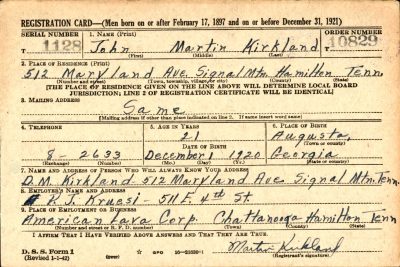 REGISTRATION CARD—(Men born on or after February 17, 1897 and on or before December 31, 1921)
SERIAL NUMBER 1. NAME (Print) ORDER NUMBER
1128 John Martin Kirkland 10829
(First) (Middle) (Last)
2. PLACE OF RESIDENCE (Print)
512 Maryland Ave Signal Mtn. Hamilton Tenn.
(Number and street) (Town, township, village, or city) (County) (State)
[THE PLACE OF RESIDENCE GIVEN ON THE LINE ABOVE WILL DETERMINE LOCAL BOARD
JURISDICTION; LINE 2 OF REGISTRATION CERTIFICATE WILL BE IDENTICAL]
3. MAILING ADDRESS
Same
[Mailing address if other than place indicated on line 2. If same insert word same]
4. TELEPHONE 5. AGE IN YEARS 6. PLACE OF BIRTH
21 Augusta,
DATE OF BIRTH (Town or county)
8- 2633 December 1 1920 Georgia
(Exchange) (Number) (Mo.) (Day) (Yr.) (State or country)
7. NAME AND ADDRESS OF PERSON WHO WILL ALWAYS KNOW YOUR ADDRESS
D.M. Kirkland 512 Maryland Ave Signal Mtn. Tenn.
8. EMPLOYER'S NAME AND ADDRESS
K.J. Kruesi - 511 F. 4th St.
9. PLACE OF EMPLOYMENT OR BUSINESS
American Lava Corp. Chattanooga Hamilton Tenn
(Number and street or R. F. D. number) (Town) (County) (State)
I AFFIRM THAT I HAVE VERIFIED ABOVE ANSWERS AND THAT THEY ARE TRUE.
D. S. S. Form 1
(Revised 1-1-42) (over) GPO 16-21630-1
Martin Kirkland
(Registrant's signature)